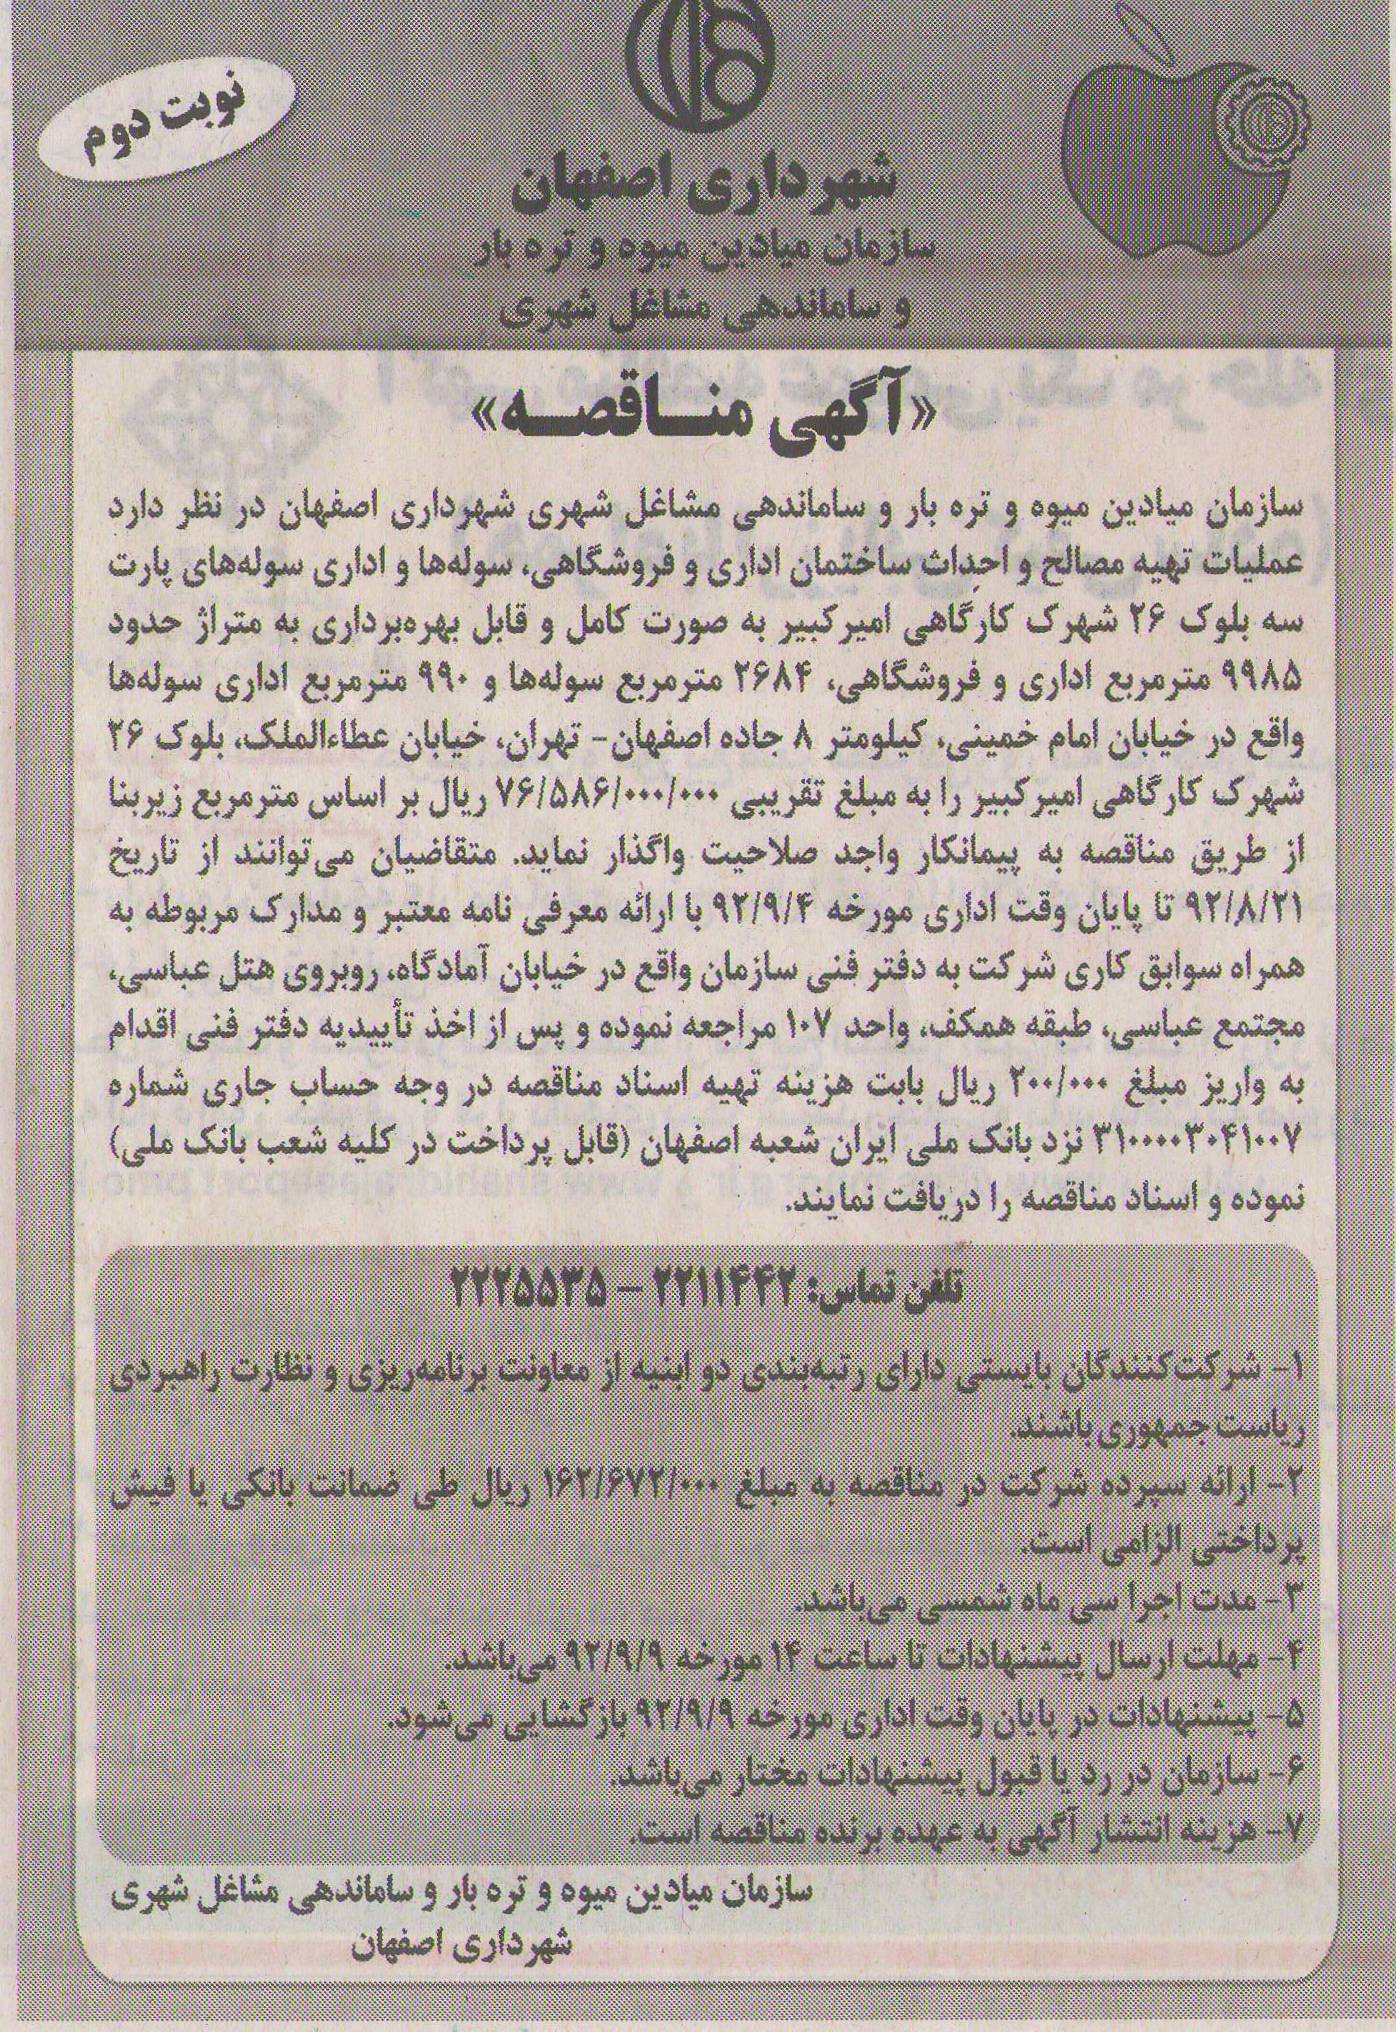 نوبت دوم
شهرداری اصفهان
سازمان میادین میوه و تره بار
و ساماندهی مشاغل شهری
«آگهی مناقصه»
سازمان میادین میوه و تره بار و ساماندهی مشاغل شهری شهرداری اصفهان در نظر دارد
عملیات تهیه مصالح و احداث ساختمان اداری و فروشگاهی، سوله‌ها و اداری سوله‌های پارت
سه بلوک ۲۶ شهرک کارگاهی امیرکبیر به صورت کامل و قابل بهره‌برداری به متراژ حدود
۹۹۸۵ مترمربع اداری و فروشگاهی، ۲۶۸۴ مترمربع سوله‌ها و ۹۹۰ مترمربع اداری سوله‌ها
واقع در خیابان امام خمینی، کیلومتر ۸ جاده اصفهان- تهران، خیابان عطاءالملک، بلوک ۲۶
شهرک کارگاهی امیرکبیر را به مبلغ تقریبی ۷۶/۵۸۶/۰۰۰/۰۰۰ ریال بر اساس مترمربع زیربنا
از طریق مناقصه به پیمانکار واجد صلاحیت واگذار نماید. متقاضیان می‌توانند از تاریخ
۹۲/۸/۲۱ تا پایان وقت اداری مورخه ۹۲/۹/۴ با ارائه معرفی نامه معتبر و مدارک مربوطه به
همراه سوابق کاری شرکت به دفتر فنی سازمان واقع در خیابان آمادگاه، روبروی هتل عباسی،
مجتمع عباسی، طبقه همکف، واحد ۱۰۷ مراجعه نموده و پس از اخذ تأییدیه دفتر فنی اقدام
به واریز مبلغ ۲۰۰/۰۰۰ ریال بابت هزینه تهیه اسناد مناقصه در وجه حساب جاری شماره
۳۱۰۰۰۰۳۰۴۱۰۰۷ نزد بانک ملی ایران شعبه اصفهان (قابل پرداخت در کلیه شعب بانک ملی)
نموده و اسناد مناقصه را دریافت نمایند.
تلفن تماس: ۲۲۱۱۴۴۲ – ۲۲۲۵۵۳۵
۱- شرکت‌کنندگان بایستی دارای رتبه‌بندی دو ابنیه از معاونت برنامه‌ریزی و نظارت راهبردی
ریاست جمهوری باشند.
۲- ارائه سپرده شرکت در مناقصه به مبلغ ۱۶۲/۶۷۲/۰۰۰ ریال طی ضمانت بانکی یا فیش
پرداختی الزامی است.
۳- مدت اجرا سی ماه شمسی می‌باشد.
۴- مهلت ارسال پیشنهادات تا ساعت ۱۴ مورخه ۹۲/۹/۹ می‌باشد.
۵- پیشنهادات در پایان وقت اداری مورخه ۹۲/۹/۹ بازگشایی می‌شود.
۶- سازمان در رد یا قبول پیشنهادات مختار می‌باشد.
۷- هزینه انتشار آگهی به عهده برنده مناقصه است.
سازمان میادین میوه و تره بار و ساماندهی مشاغل شهری
شهرداری اصفهان